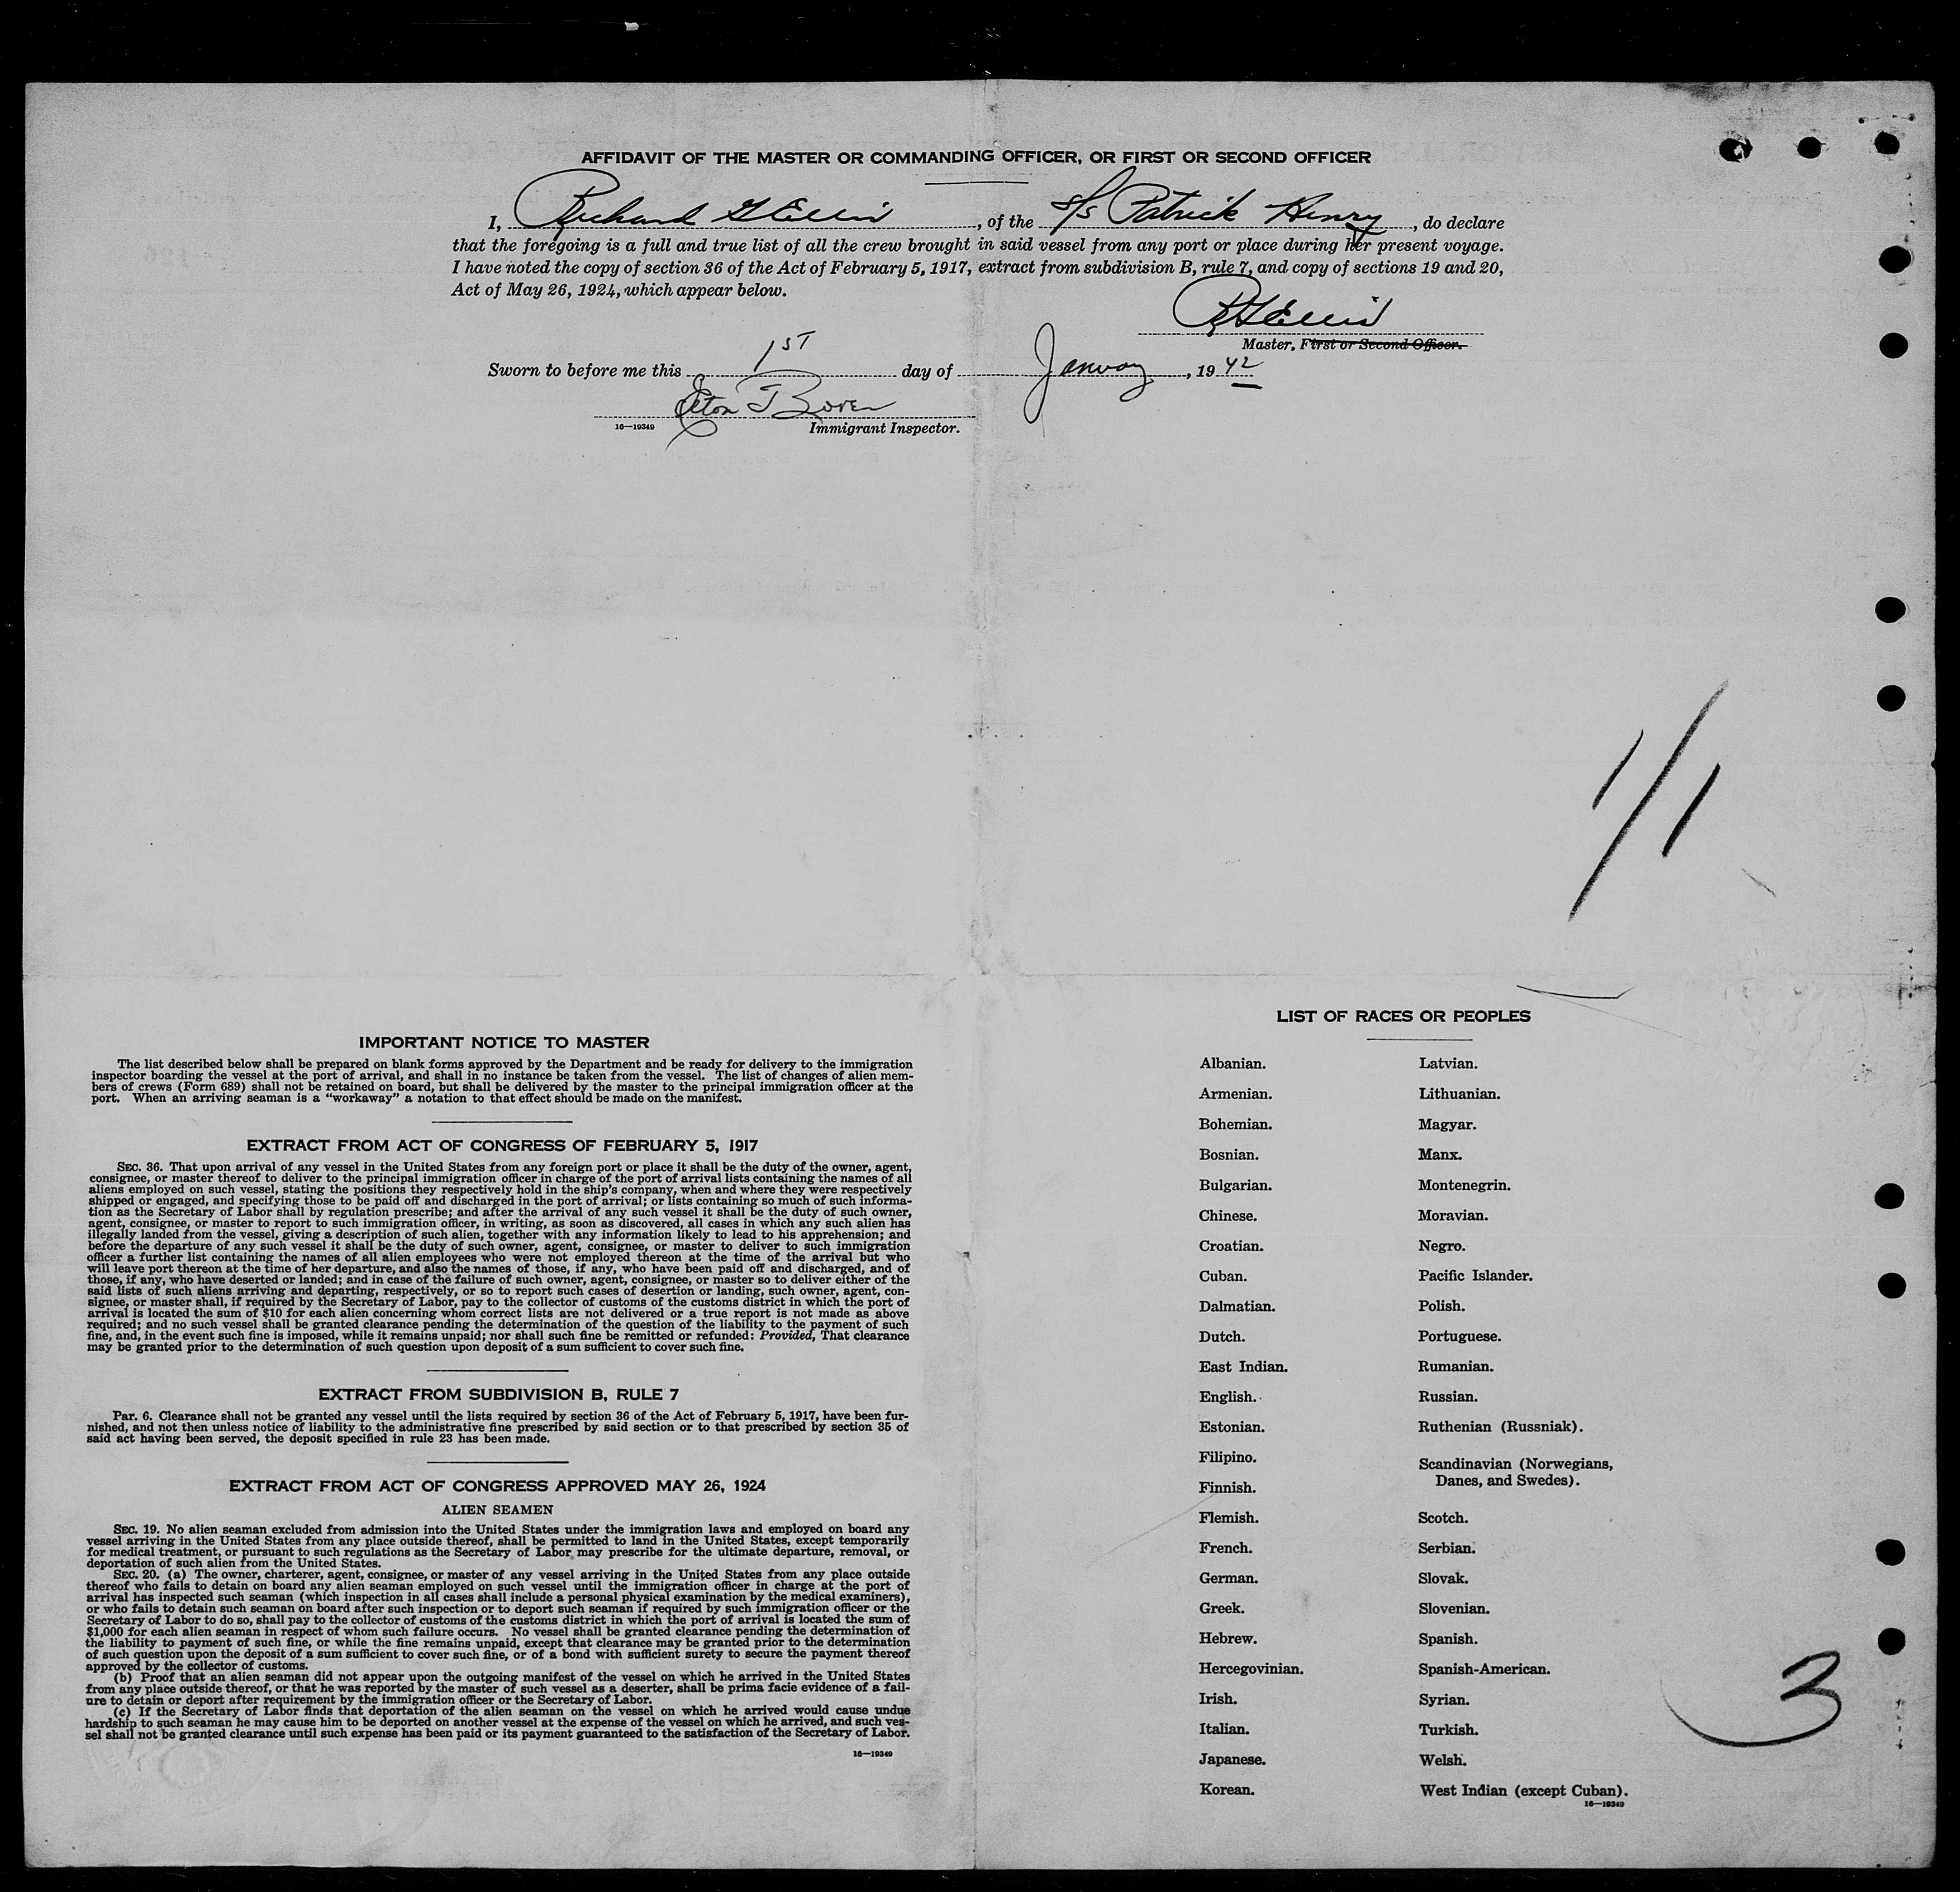 AFFIDAVIT OF THE MASTER OR COMMANDING OFFICER, OR FIRST OR SECOND OFFICER
I, Richard G Ellis, of the S/S Patrick Henry, do declare
that the foregoing is a full and true list of all the crew brought in said vessel from any port or place during her present voyage.
I have noted the copy of section 36 of the Act of February 5, 1917, extract from subdivision B, rule 7, and copy of sections 19 and 20,
Act of May 26, 1924, which appear below.
RGEllis
Master, First or Second Officer.
Sworn to before me this 1ST day of January, 1942
Immigrant Inspector.
16—19349
1/1
IMPORTANT NOTICE TO MASTER
The list described below shall be prepared on blank forms approved by the Department and be ready for delivery to the immigration
inspector boarding the vessel at the port of arrival, and shall in no instance be taken from the vessel. The list of changes of alien mem-
bers of crews (Form 689) shall not be retained on board, but shall be delivered by the master to the principal immigration officer at the
port. When an arriving seaman is a "workaway" a notation to that effect should be made on the manifest.
EXTRACT FROM ACT OF CONGRESS OF FEBRUARY 5, 1917
SEC. 36. That upon arrival of any vessel in the United States from any foreign port or place it shall be the duty of the owner, agent,
consignee, or master thereof to deliver to the principal immigration officer in charge of the port of arrival lists containing the names of all
aliens employed on such vessel, stating the positions they respectively hold in the ship's company, when and where they were respectively
shipped or engaged, and specifying those to be paid off and discharged in the port of arrival; or lists containing so much of such informa-
tion as the Secretary of Labor shall by regulation prescribe; and after the arrival of any such vessel it shall be the duty of such owner,
agent, consignee, or master to report to such immigration officer, in writing, as soon as discovered, all cases in which any such alien has
illegally landed from the vessel, giving a description of such alien, together with any information likely to lead to his apprehension; and
before the departure of any such vessel it shall be the duty of such owner, agent, consignee, or master to deliver to such immigration
officer a further list containing the names of all alien employees who were not employed thereon at the time of the arrival but who
will leave port thereon at the time of her departure, and also the names of those, if any, who have been paid off and discharged, and of
those, if any, who have deserted or landed; and in case of the failure of such owner, agent, consignee, or master so to deliver either of the
said lists of such aliens arriving and departing, respectively, or so to report such cases of desertion or landing, such owner, agent, con-
signee, or master shall, if required by the Secretary of Labor, pay to the collector of customs of the customs district in which the port of
arrival is located the sum of $10 for each alien concerning whom correct lists are not delivered or a true report is not made as above
required; and no such vessel shall be granted clearance pending the determination of the question of the liability to the payment of such
fine, and, in the event such fine is imposed, while it remains unpaid; nor shall such fine be remitted or refunded: Provided, That clearance
may be granted prior to the determination of such question upon deposit of a sum sufficient to cover such fine.
EXTRACT FROM SUBDIVISION B, RULE 7
Par. 6. Clearance shall not be granted any vessel until the lists required by section 36 of the Act of February 5, 1917, have been fur-
nished, and not then unless notice of liability to the administrative fine prescribed by said section or to that prescribed by section 35 of
said act having been served, the deposit specified in rule 23 has been made.
EXTRACT FROM ACT OF CONGRESS APPROVED MAY 26, 1924
ALIEN SEAMEN
SEC. 19. No alien seaman excluded from admission into the United States under the immigration laws and employed on board any
vessel arriving in the United States from any place outside thereof, shall be permitted to land in the United States, except temporarily
for medical treatment, or pursuant to such regulations as the Secretary of Labor may prescribe for the ultimate departure, removal, or
deportation of such alien from the United States.
SEC. 20. (a) The owner, charterer, agent, consignee, or master of any vessel arriving in the United States from any place outside
thereof who fails to detain on board any alien seaman employed on such vessel until the immigration officer in charge at the port of
arrival has inspected such seaman (which inspection in all cases shall include a personal physical examination by the medical examiners),
or who fails to detain such seaman on board after such inspection or to deport such seaman if required by such immigration officer or the
Secretary of Labor to do so, shall pay to the collector of customs of the customs district in which the port of arrival is located the sum of
$1,000 for each alien seaman in respect of whom such failure occurs. No vessel shall be granted clearance pending the determination of
the liability to payment of such fine, or while the fine remains unpaid, except that clearance may be granted prior to the determination
of such question upon the deposit of a sum sufficient to cover such fine, or of a bond with sufficient surety to secure the payment thereof
approved by the collector of customs.
(b) Proof that an alien seaman did not appear upon the outgoing manifest of the vessel on which he arrived in the United States
from any place outside thereof, or that he was reported by the master of such vessel as a deserter, shall be prima facie evidence of a fail-
ure to detain or deport after requirement by the immigration officer or the Secretary of Labor.
(c) If the Secretary of Labor finds that deportation of the alien seaman on the vessel on which he arrived would cause undue
hardship to such seaman he may cause him to be deported on another vessel at the expense of the vessel on which he arrived, and such ves-
sel shall not be granted clearance until such expense has been paid or its payment guaranteed to the satisfaction of the Secretary of Labor.
16—19349
LIST OF RACES OR PEOPLES
Albanian.
Armenian.
Bohemian.
Bosnian.
Bulgarian.
Chinese.
Croatian.
Cuban.
Dalmatian.
Dutch.
East Indian.
English.
Estonian.
Filipino.
Finnish.
Flemish.
French.
German.
Greek.
Hebrew.
Hercegovinian.
Irish.
Italian.
Japanese.
Korean.
Latvian.
Lithuanian.
Magyar.
Manx.
Montenegrin.
Moravian.
Negro.
Pacific Islander.
Polish.
Portuguese.
Rumanian.
Russian.
Ruthenian (Russniak).
Scandinavian (Norwegians,
Danes, and Swedes).
Scotch.
Serbian.
Slovak.
Slovenian.
Spanish.
Spanish-American.
Syrian.
Turkish.
Welsh.
West Indian (except Cuban).
16—19349
3